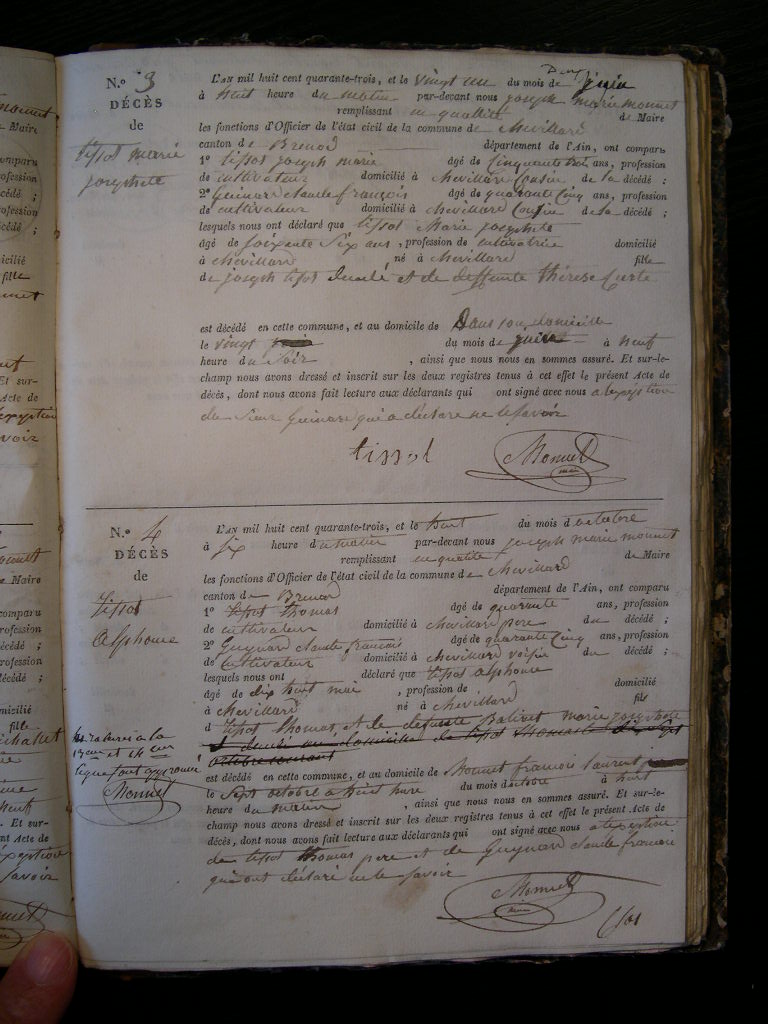 N.º 3
DÉCÈS
de
tissot marie
josephete
L'AN mil huit cent quarante-trois, et le vingt un du mois de juin
à huit heure du matin par-devant nous joseph marie monnet
remplissant en qualité de Maire
les fonctions d'Officier de l'état civil de la commune de chevillard
canton de Brenod département de l'Ain, ont comparu
1º tissot joseph marie âgé de Cinquante trois ans, profession
de cultivateur domicilié à chevillard Cousin de la décédé ;
2º Guinard claude françois âgé de quarante Cinq ans, profession
de cultivateur domicilié à chevillard Cousin de la décédé ;
lesquels nous ont déclaré que tissot Marie josephete
âgé de soixante Six ans , profession de cultivatrice domicilié
à chevillard , né à chevillard fille
de joseph tissot et de deffunte thérèse
est décédé en cette commune, et au domicile de Dans son domicille
le vingt du mois de juin à neuf
heure du Soir , ainsi que nous nous en sommes assuré. Et sur-le-
champ nous avons dressé et inscrit sur les deux registres tenus à cet effet le présent Acte de
décès, dont nous avons fait lecture aux déclarants qui ont signé avec nous a lexeption
du Sieur Guinard qui a déclaré ne le savoir
tissot Monnet
N.º 4
DÉCÈS
de
tissot
Alphonse
L'AN mil huit cent quarante-trois, et le huit du mois d octobre
à six heure du matin par-devant nous joseph marie monnet
remplissant en qualité de Maire
les fonctions d'Officier de l'état civil de la commune de chevillard
canton de Brenod département de l'Ain, ont comparu
1º tissot thomas âgé de quarante ans, profession
de cultivateur domicilié à chevillard pere du décédé ;
2º Guynard claude francois âgé de quarante Cinq ans, profession
de Cultivateur domicilié à chevillard voisin du décédé ;
lesquels nous ont déclaré que tissot alphonse
âgé de dix huit moi , profession de domicilié
à chevillard né à chevillard fils
d tissot thomas, et de defunte Balivet marie josephete
est décédé en cette commune, et au domicile de Monnet francois laurent
le Sept octobre a huit hure du mois doctobre à huit
heure du matin , ainsi que nous nous en sommes assuré. Et sur-le-
champ nous avons dressé et inscrit sur les deux registres tenus à cet effet le présent Acte de
décès, dont nous avons fait lecture aux déclarants qui ont signé avec nous a lexeption
de tissot thomas pere et de Guynard claude francois
qui ont déclaré ne le savoir
Monnet
les ratures a la
13eme et 14 eme
ligne sont approuvé
Monnet